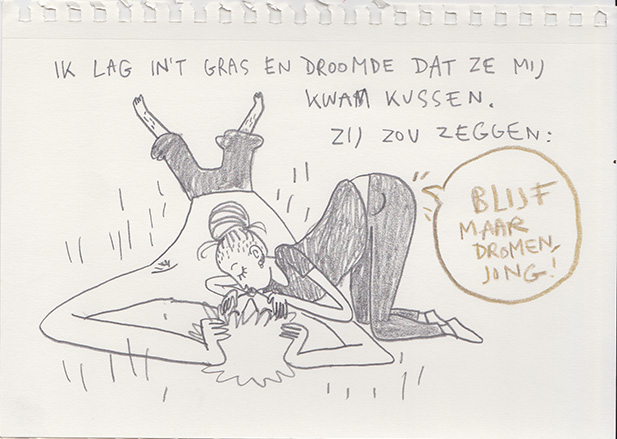 IK LAG IN'T GRAS EN DROOMDE DAT ZE MIJ
KWAM KUSSEN.
ZIJ ZOU ZEGGEN:
BLIJF
MAAR
DROMEN,
JONG!